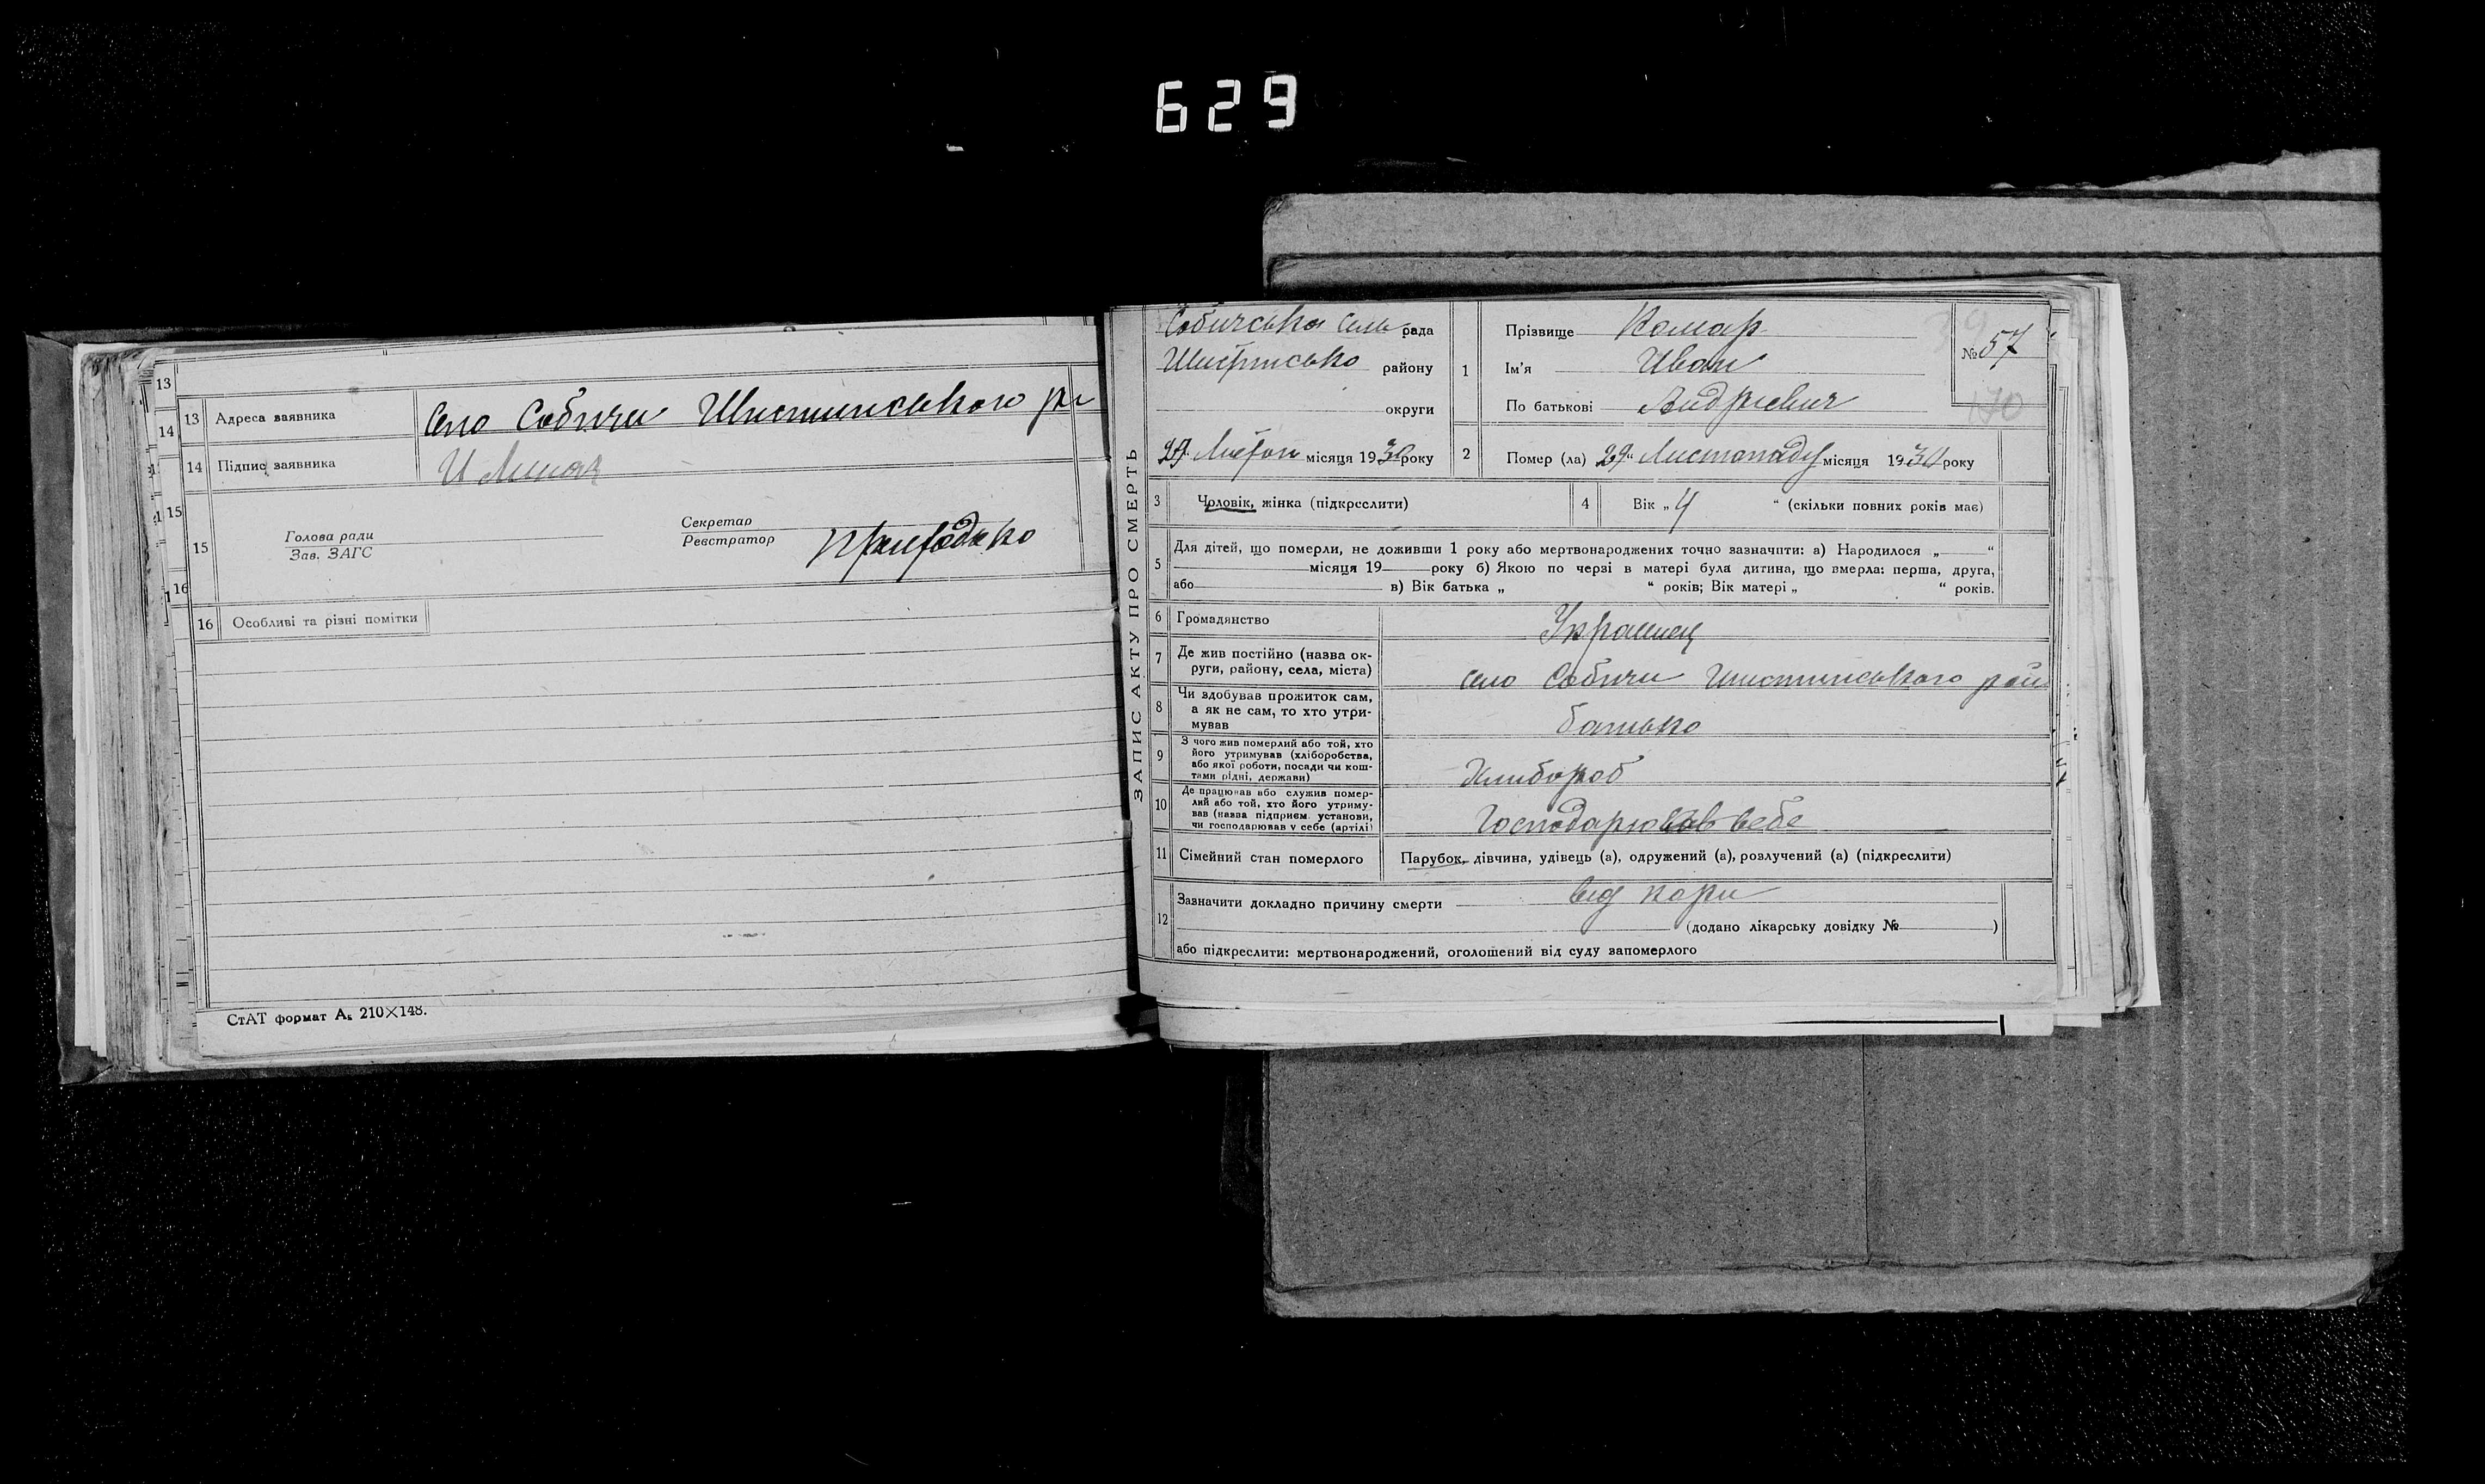 629
13
14
15
16
13 Адреса заявника Село Собичи Шостинського ра
14 Підпис заявника И
15 Голова ради
Зав. ЗАГС
Секретар
Реєстратор
16 Особливі та різні помітки
СтАТ формат А₅ 210×148.
ЗАПИС АКТУ ПРО СМЕРТЬ
Собичська Сель рада
району
округи
29 місяця 1930 року
1 Прізвище Комар
Ім'я Иван
По батькові Андриевич
№ 57
170
2 Помер (ла) 29" Листопаду місяця 1930 року
3 Чоловік, жінка (підкреслити)
4 Вік „ 4 “ (скільки повних років має)
5 Для дітей, що померли, не доживши 1 року або мертвонароджених точно зазначити: а) Народилося „ “
місяця 19 року б) Якою по черзі в матері була дитина, що вмерла: перша, друга,
або в) Вік батька „ “ років; Вік матері „ “ років.
6 Громадянство Украинец
7 Де жив постійно (назва ок-
руги, району, села, міста) село Собичи Шостинського рай
8 Чи здобував прожиток сам,
а як не сам, то хто утри-
мував батько
9 З чого жив померлий або той, хто
його утримував (хліборобства,
або якої роботи, посади чи кош-
тами рідні, держави) Хлибороб
10 Де працював або служив помер-
лий або той, хто його утриму-
вав (назва підприєм. установи,
чи господарював у себе (артілі) Господарював в себе
11 Сімейний стан померлого Парубок, дівчина, удівець (а), одружений (а), розлучений (а) (підкреслити)
12 Зазначити докладно причину смерти від кори
(додано лікарську довідку № )
або підкреслити: мертвонароджений, оголошений від суду запомерлого